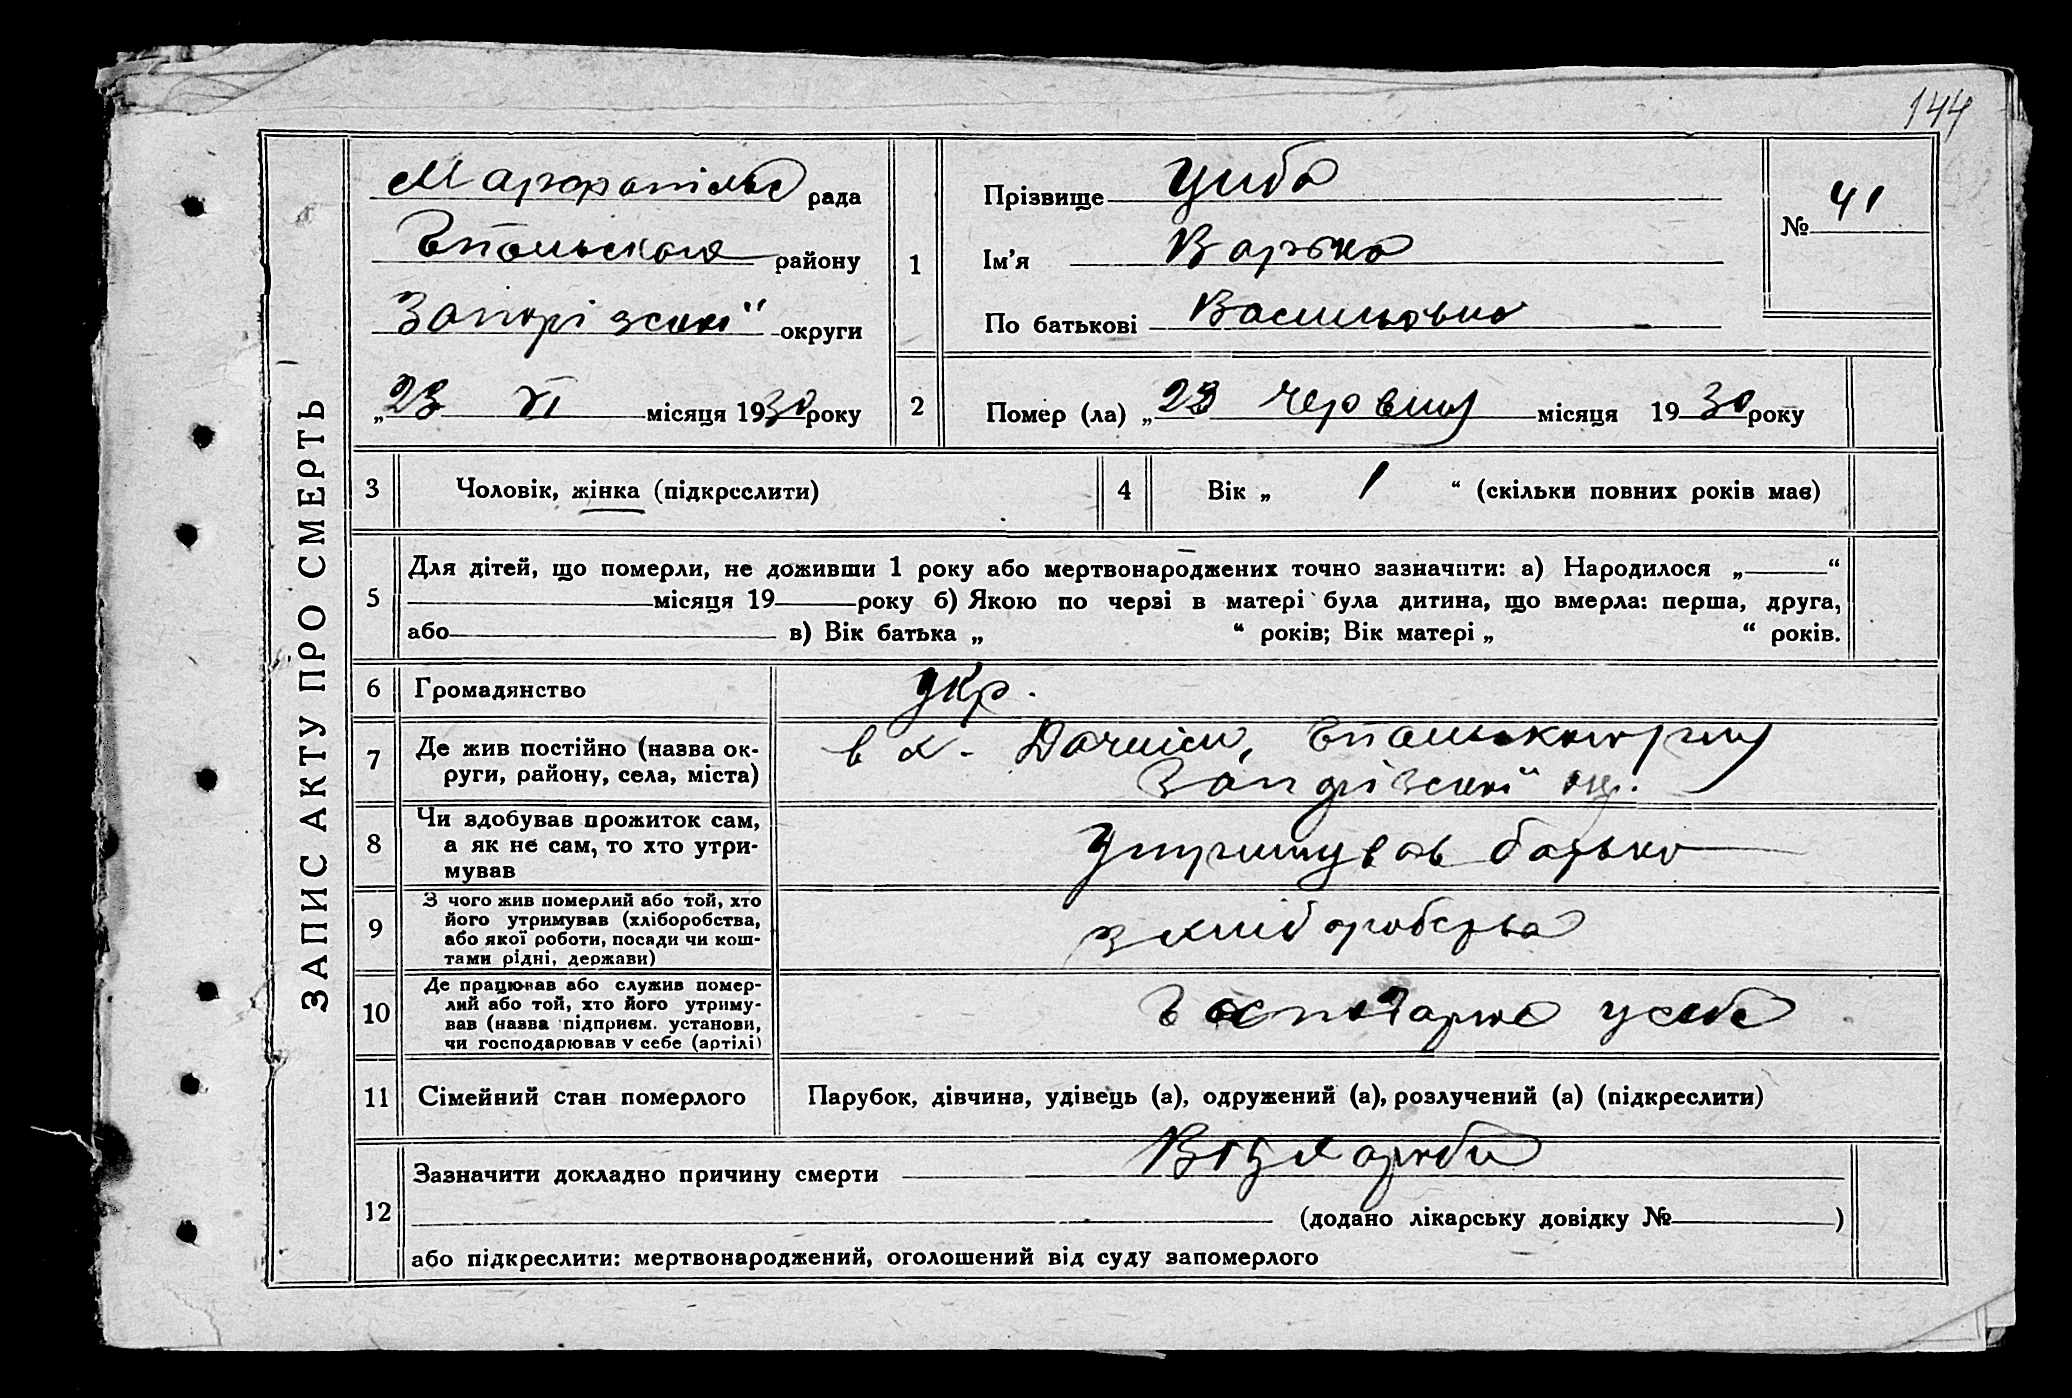 144
ЗАПИС АКТУ ПРО СМЕРТЬ
Марфопільс рада
району
Запорізської округи
„23 VI місяця 1930 року
1
Прізвище Циба
Ім’я Варька
По батькові Василівна
№ 41
2
Помер (ла) „23 червня місяця 1930 року
3
Чоловік, жінка (підкреслити)
4
Вік „ 1 “ (скільки повних років має)
5
Для дітей, що померли, не доживши 1 року або мертвонароджених точно зазначити: а) Народилося „ “
місяця 19 року б) Якою по черзі в матері була дитина, що вмерла: перша, друга,
або в) Вік батька „ “ років; Вік матері „ “ років.
6
Громадянство
укр.
7
Де жив постійно (назва ок-
руги, району, села, міста)
в х.
Запорізської окр.
8
Чи здобував прожиток сам,
а як не сам, то хто утри-
мував
Утримував батько
9
З чого жив померлий або той, хто
його утримував (хліборобства,
або якої роботи, посади чи кош-
тами рідні, держави)
з хліборобства
10
Де працював або служив помер-
лий або той, хто його утриму-
вав (назва підприєм. установи,
чи господарював у себе (артілі)
Господарює у себе
11
Сімейний стан померлого
Парубок, дівчина, удівець (а), одружений (а), розлучений (а) (підкреслити)
12
Зазначити докладно причину смерти Від хороби
(додано лікарську довідку № )
або підкреслити: мертвонароджений, оголошений від суду запомерлого